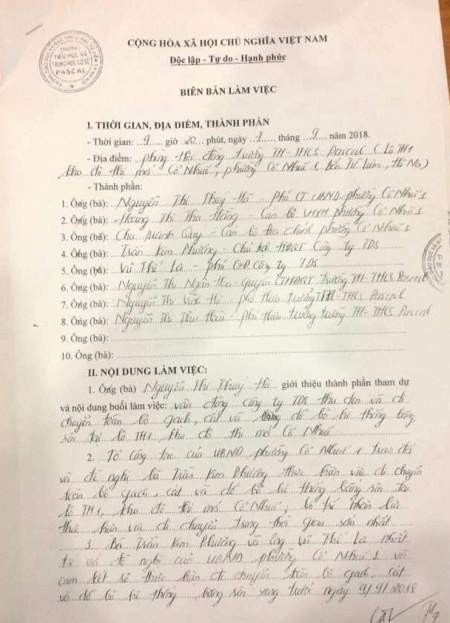 TRƯỜNG
TIỂU HỌC VÀ
TRUNG HỌC CƠ SỞ
PASCAL
CỘNG HÒA XÃ HỘI CHỦ NGHĨA VIỆT NAM
Độc lập - Tự do - Hạnh phúc
BIÊN BẢN LÀM VIỆC
I. THỜI GIAN, ĐỊA ĐIỂM, THÀNH PHẦN
- Thời gian: 9 giờ 20 phút, ngày 1 tháng 9 năm 2018.
- Địa điểm: phòng Hội đồng trường TH-THCS Pascal (Lô TH1
khu đô thị mới Cổ Nhuế, phường Cổ Nhuế 1, Bắc Từ Liêm, Hà Nội)
- Thành phần:
1. Ông (bà): Nguyễn Thị Thúy Hà - Phó CT UBND phường Cổ Nhuế 1
2. Ông (bà): Hoàng Thị Thu Hồng - Cán bộ phường Cổ Nhuế 1
3. Ông (bà): Chu - Cán bộ địa chính phường Cổ Nhuế 1
4. Ông (bà): Trần Kim Phương - Chủ tịch HĐQT Công ty TDS
5. Ông (bà): Vũ Thế La - phó Công ty TDS
6. Ông (bà): Nguyễn Thị Ngân Hà - Quyền CTHĐQT Trường TH-THCS Pascal
7. Ông (bà): Nguyễn Thị Vân - phó hiệu trưởng TH-THCS Pascal
8. Ông (bà): Nguyễn Thị - Phó hiệu trưởng trường TH-THCS Pascal
9. Ông (bà):
10. Ông (bà):
II. NỘI DUNG LÀM VIỆC:
1. Ông (bà) Nguyễn Thị Thúy Hà giới thiệu thành phần tham dự
và nội dung buổi làm việc: vận động công ty TDS thu dọn và di
chuyển toàn bộ gạch, cát và đổ bỏ bê thông bằng
sân tại lô TH1 khu đô thị mới Cổ Nhuế
2. Tổ công tác của UBND phường Cổ Nhuế 1 trao đổi
và đề nghị bà Trần Kim Phương thực hiện việc di chuyển
toàn bộ gạch, cát và đổ bỏ bê thông bằng sân tại
lô TH1, khu đô thị mới Cổ Nhuế,
thực hiện việc di chuyển trong thời gian sớm nhất
3. Bà Trần Kim Phương và ông Vũ Thế La nhất
trí với đề nghị của UBND phường Cổ Nhuế 1 và
cam kết sẽ thực hiện di chuyển toàn bộ gạch, cát
và đổ bỏ bê thông bằng sân xong trước ngày 9/9/2018